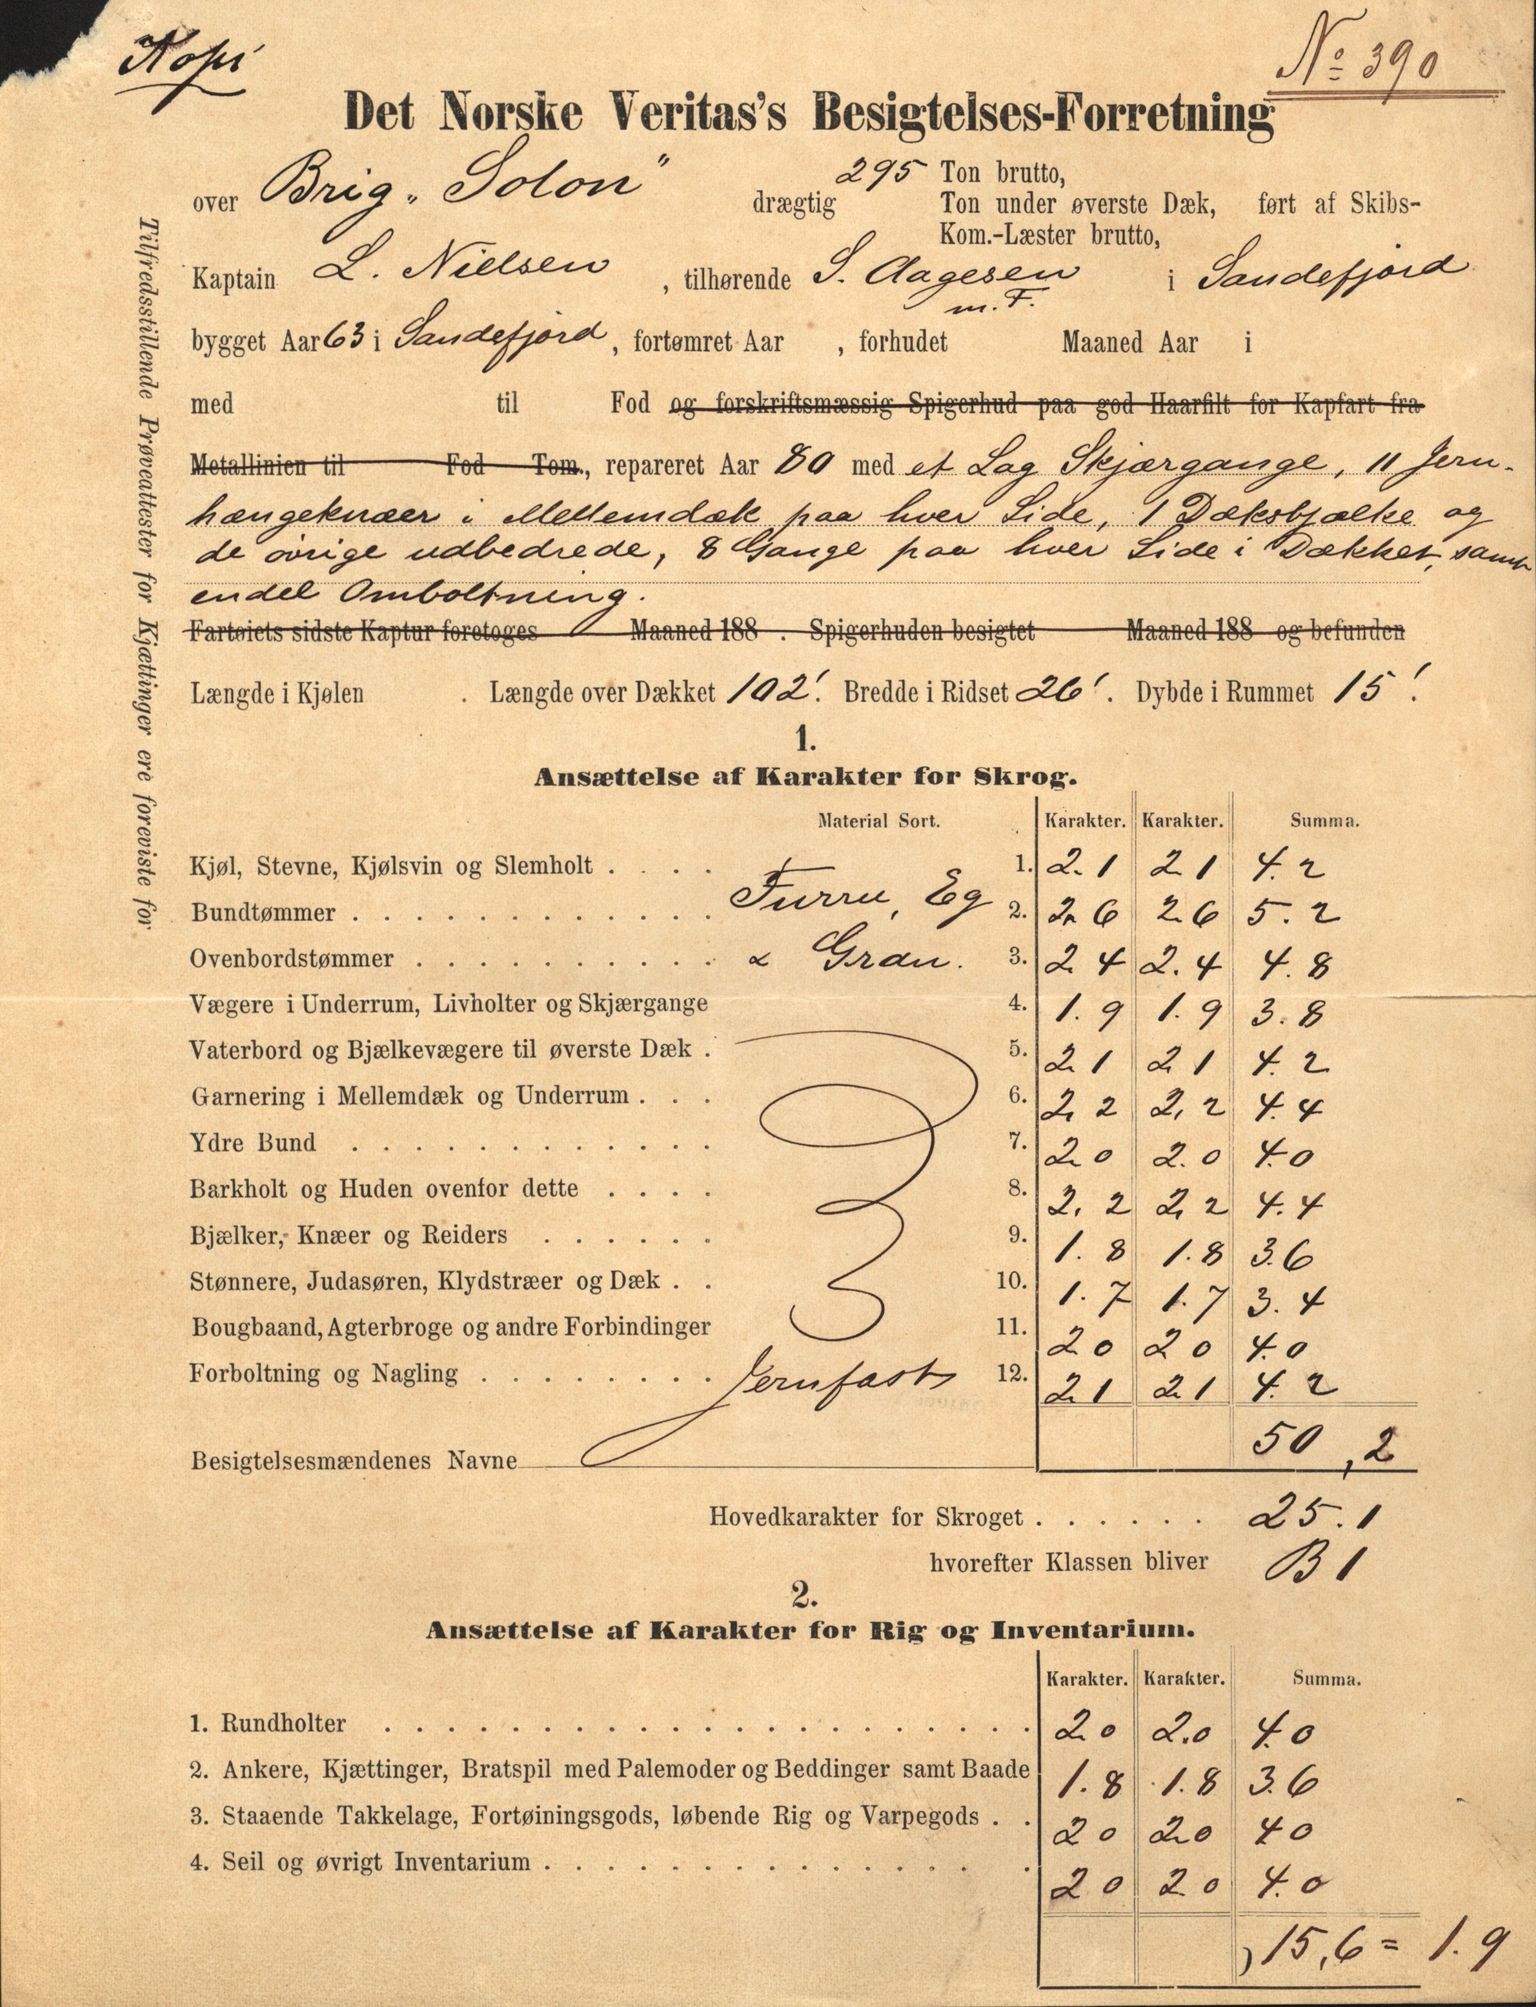 Kopi
No 390
Det Norske Veritas's Besigtelses-Forretning
over Brig „Solon" drægtig 295 Ton brutto,
Ton under øverste Dæk, ført af Skibs-
Kom.-Læster brutto,
Kaptain L. Nielsen, tilhørende S. Aagesen m. F. i Sandefjord
bygget Aar 63 i Sandefjord, fortømret Aar , forhudet Maaned Aar i
med til Fod og forskriftsmæssig Spigerhud paa god Haarfilt for Kapfart fra
Metallinien til Fod Tom., repareret Aar 80 med et Lag Skjærgange, 11 Jern-
hængeknæer i Mellemdæk paa hver Side, 1 Dæksbjælke og
de øvrige udbedrede, 8 Gange paa hver Side i Dækket, samt
endel Omboltning.
Fartøiets sidste Kaptur foretoges Maaned 188 . Spigerhuden besigtet Maaned 188 og befunden
Længde i Kjølen . Længde over Dækket 102'. Bredde i Ridset 26'. Dybde i Rummet 15'.
Tilfredsstillende Prøvattester for Kjættinger ere foreviste for
1.
Ansættelse af Karakter for Skrog.
Material Sort. Karakter. Karakter. Summa.
Kjøl, Stevne, Kjølsvin og Slemholt . . . . 1. 2.1 2.1 4.2
Bundtømmer . . . . Furru, Eg 2. 2.6 2.6 5.2
Ovenbordstømmer . . . . & Gran. 3. 2.4 2.4 4.8
Vægere i Underrum, Livholter og Skjærgange 4. 1.9 1.9 3.8
Vaterbord og Bjælkevægere til øverste Dæk . 5. 2.1 2.1 4.2
Garnering i Mellemdæk og Underrum . . . 6. 2.2 2.2 4.4
Ydre Bund . . . . 7. 2.0 2.0 4.0
Barkholt og Huden ovenfor dette . . . . 8. 2.2 2.2 4.4
Bjælker, Knæer og Reiders . . . . 9. 1.8 1.8 3.6
Stønnere, Judasøren, Klydstræer og Dæk . . 10. 1.7 1.7 3.4
Bougbaand, Agterbroge og andre Forbindinger 11. 2.0 2.0 4.0
Forboltning og Nagling . . . . Jernfast 12. 2.1 2.1 4.2
50,2
Besigtelsesmændenes Navne
Hovedkarakter for Skroget . . . . . . 25.1
hvorefter Klassen bliver B 1
2.
Ansættelse af Karakter for Rig og Inventarium.
Karakter. Karakter. Summa.
1. Rundholter . . . . 2.0 2.0 4.0
2. Ankere, Kjættinger, Bratspil med Palemoder og Beddinger samt Baade 1.8 1.8 3.6
3. Staaende Takkelage, Fortøiningsgods, løbende Rig og Varpegods . . 2.0 2.0 4.0
4. Seil og øvrigt Inventarium . . . . 2.0 2.0 4.0
15,6 = 1.9